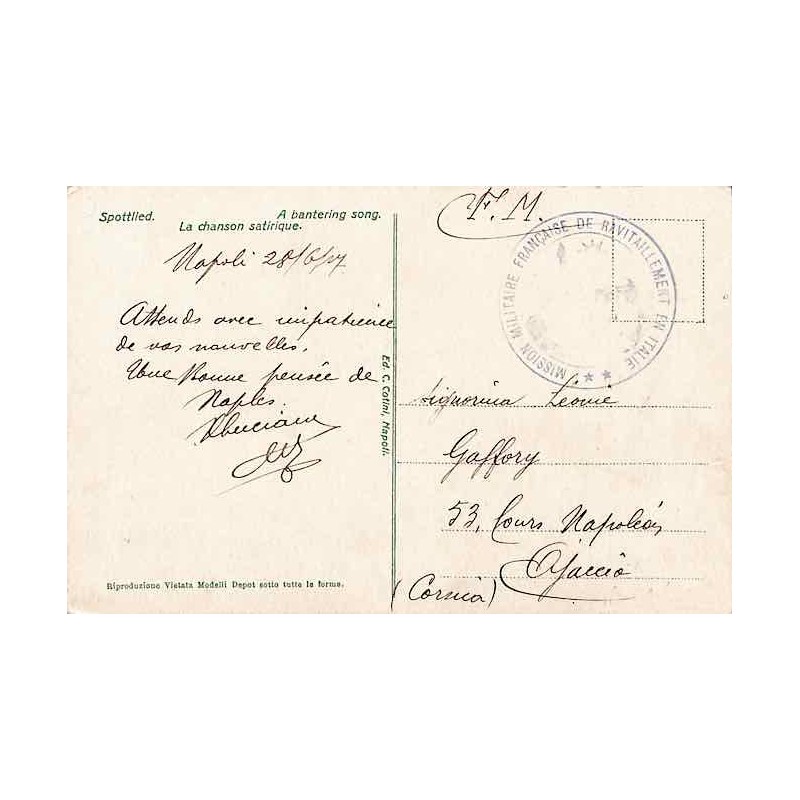 Spottlied.
A bantering song.
La chanson satirique.
Napoli 28/6/17
Attends avec impatience
de vos nouvelles.
Une Bonne pensée de
Naples.
Ed. C. Cotini, Napoli.
Riproduzione Vietata Modelli Depot sotto tutte le forme.
F. M.
MISSION MILITAIRE FRANÇAISE DE RAVITAILLEMENT EN ITALIE
Signorina Léonie
Gaffory
53, Cours Napoléon
Ajaccio
(Corsica)